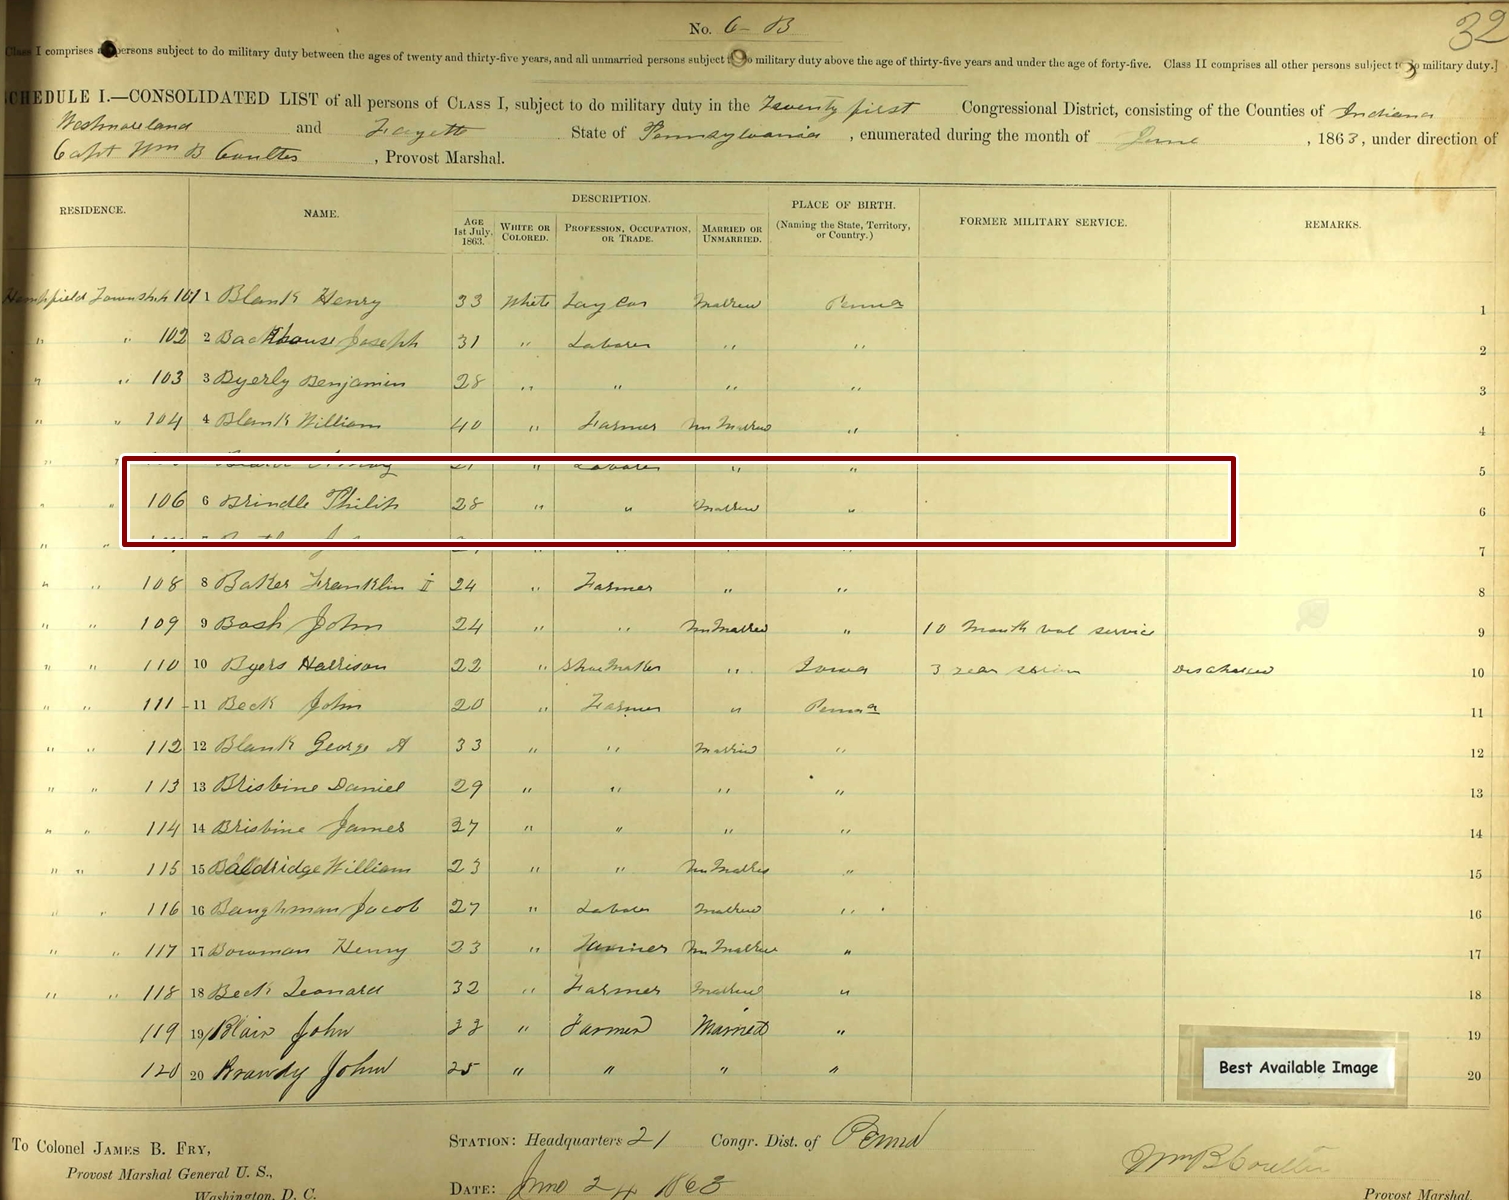 No. 6-B
32
Class I comprises all persons subject to do military duty between the ages of twenty and thirty-five years, and all unmarried persons subject to do military duty above the age of thirty-five years and under the age of forty-five. Class II comprises all other persons subject to do military duty.]
SCHEDULE I.—CONSOLIDATED LIST of all persons of CLASS I, subject to do military duty in the Twenty first Congressional District, consisting of the Counties of Indiana
Westmoreland and Fayette State of Pennsylvania, enumerated during the month of June, 1863, under direction of
Capt Wm B Coulter, Provost Marshal.
RESIDENCE. NAME. DESCRIPTION. PLACE OF BIRTH. (Naming the State, Territory, or Country.) FORMER MILITARY SERVICE. REMARKS.
AGE 1st July, 1863. WHITE OR COLORED. PROFESSION, OCCUPATION, OR TRADE. MARRIED OR UNMARRIED.
Hempfield Township 101 1 Blank Henry 33 White Married Penna 1
" " 102 2 Backhouse Joseph 31 " Laborer " " 2
" " 103 3 Byerly Benjamin 28 " " " " 3
" " 104 4 Blank William 40 " Farmer Un Married " 4
" " 21 " Laborer " " 5
" " 106 6 Brindle Philip 28 " " Married " 6
" " 7
" " 108 8 Baker Franklin 24 " Farmer " " 8
" " 109 9 Bash John 24 " " Un Married " 10 Month vol service 9
" " 110 10 Byers Harrison 22 " Shoemaker " Iowa 3 year service Discharged 10
" " 111 11 Beck John 20 " Farmer " Penna 11
" " 112 12 Blank George A 33 " " Married " 12
" " 113 13 Brisbine Daniel 29 " " " " 13
" " 114 14 Brisbine James 27 " " " " 14
" " 115 15 Baldridge William 23 " " Un Married " 15
" " 116 16 Baughman Jacob 27 " Laborer Married " 16
" " 117 17 Bowman Henry 23 " Un Married " 17
" " 118 18 Beck Leonard 32 " Farmer Married " 18
119 19 Blair John 33 " Farmer Married " 19
120 20 Brandy John 25 " " " " 20
Best Available Image
To Colonel JAMES B. FRY,
Provost Marshal General U. S.,
Washington, D. C.
STATION: Headquarters 21 Congr. Dist. of Penna
DATE: June 24 1863
Wm B Coulter
Provost Marshal.